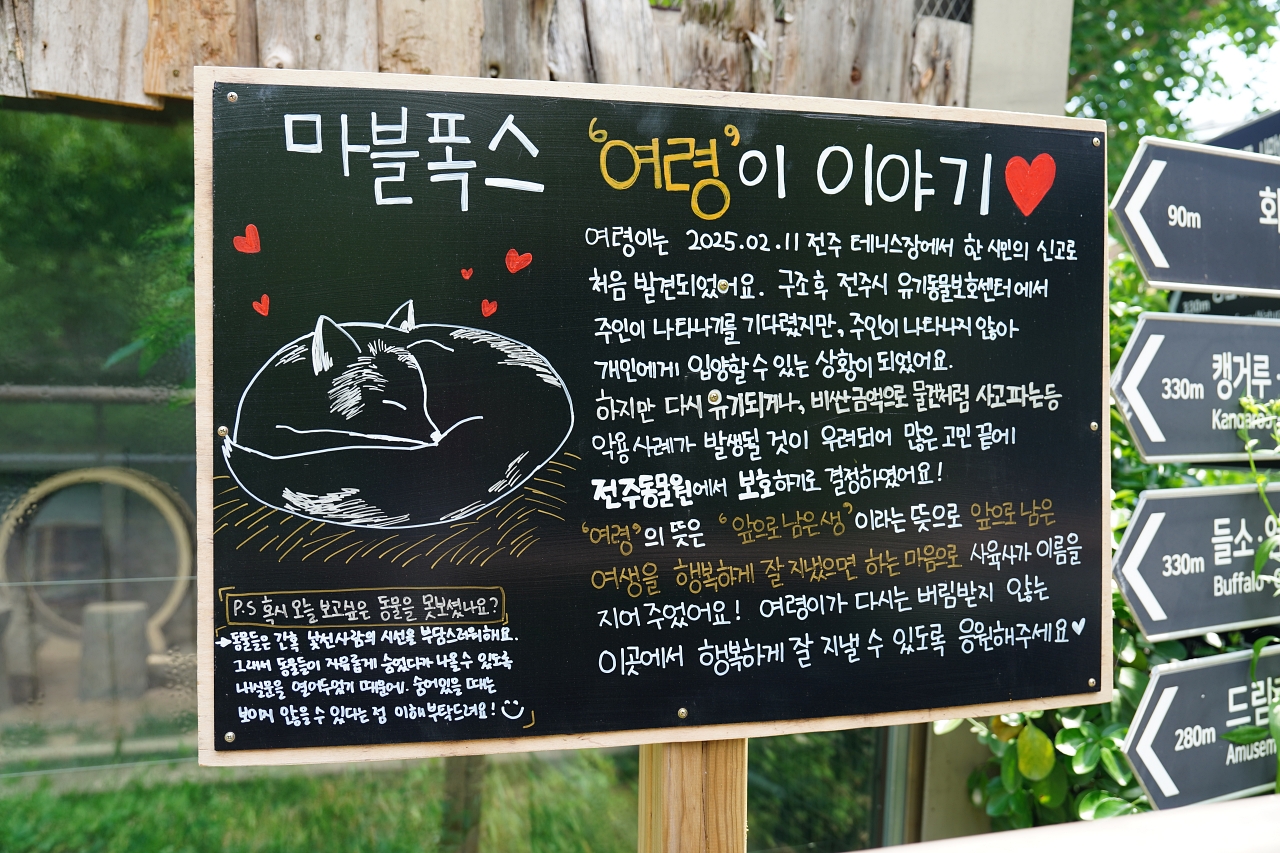 마블폭스 '여령'이 이야기
여령이는 2025.02.11 전주 테니스장에서 한 시민의 신고로
처음 발견되었어요. 구조 후 전주시 유기동물보호센터에서
주인이 나타나기를 기다렸지만, 주인이 나타나지 않아
개인에게 입양할 수 있는 상황이 되었어요.
하지만 다시 유기되거나, 비싼금액으로 물건처럼 사고파는등
악용사례가 발생될 것이 우려되어 많은 고민 끝에
전주동물원에서 보호하기로 결정하였어요!
'여령'의 뜻은 '앞으로 남은 생'이라는 뜻으로 앞으로 남은
여생을 행복하게 잘 지냈으면 하는 마음으로 사육사가 이름을
지어 주었어요! 여령이가 다시는 버림받지 않는
이곳에서 행복하게 잘 지낼 수 있도록 응원해주세요♥
P.S 혹시 오늘 보고싶은 동물을 못보셨나요?
→동물들은 간혹 낯선사람의 시선을 부담스러워해요.
그래서 동물들이 자유롭게 숨었다가 나올수 있도록
내실문을 열어두었기 때문에, 숨어있을 때는
보이지 않을 수 있다는 점 이해부탁드려요!
90m
330m 캥거루
Kangaroo
330m 들소
Buffalo
280m 드림
Amusem